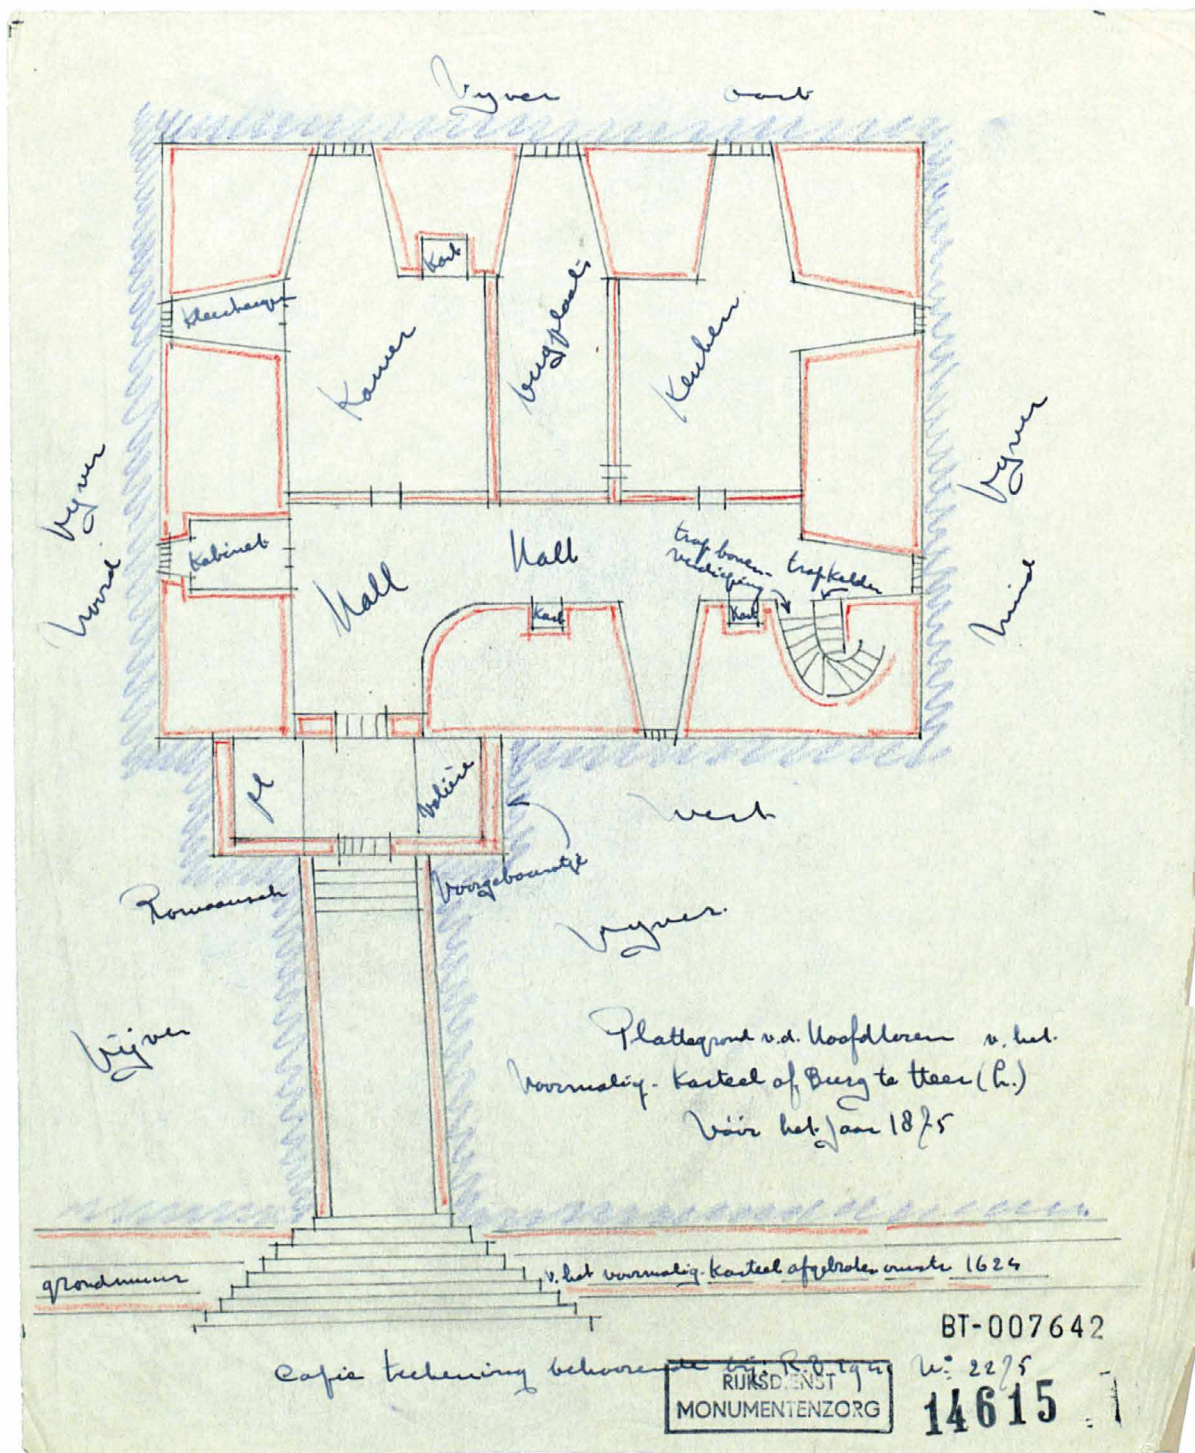 Vyver oost
Kast
Kamer
Keuken
Vyver
Noord
Kabinet
Hall
Hall
trap boven-
verdieping
trap kelder
Kast
Kast
Vyver
Zuid
Volière
west
Romaansch
Voorgebouwtje
Vyver.
Vijver
Plattegrond v.d. Hoofdtoren v. het
Voormalig. Kasteel of Burg te Heer (L.)
Vóór het Jaar 1875
grondmuur v. het voormalig. Kasteel afgebroken omstr 1624
BT-007642
Copie teekening behoorende bij: No 2275
RIJKSDIENST
MONUMENTENZORG
14615